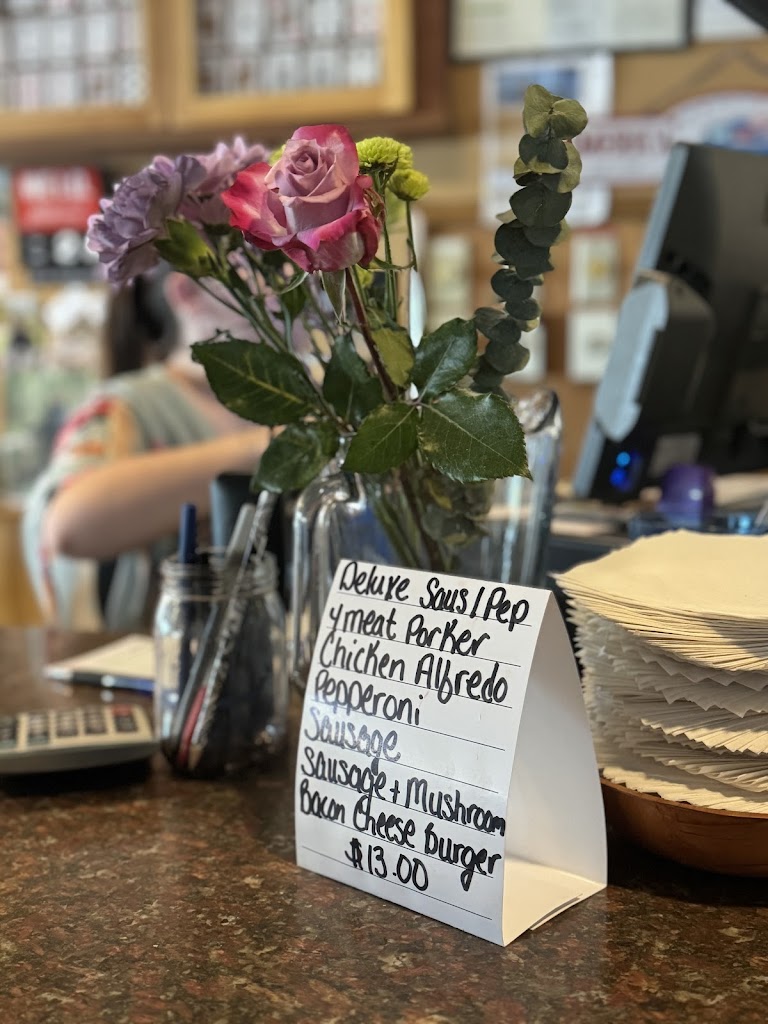 Deluxe Saus/Pep
4 meat Porker
Chicken Alfredo
Pepperoni
Sausage
Sausage + Mushroom
Bacon Cheese Burger
$13.00